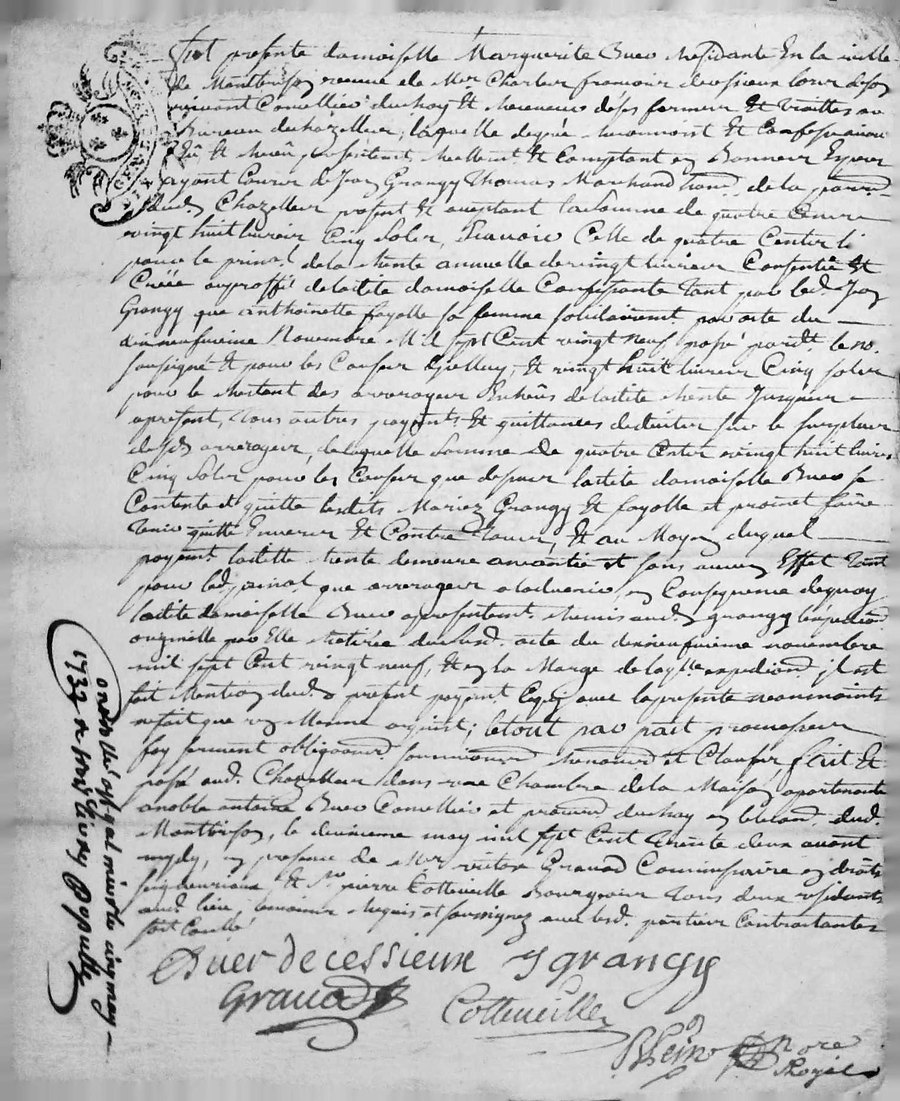 fut presente damoiselle Marguerite Buer residante En la ville
de Montbrison veuve de Mre Charles francois decessieux lors de son
vivant Conseillier du Roy Et receveur des fermes Et traittes au
Bureau de chazelles, laquelle degrée reconnoist Et Confesse avoir
Eû Et receû presentement, reellement Et Comptant en Bonnes Espece
ayant Cours de Jean Grangy Thomas Marchand de la parr
dud. Chazelles present Et aceptant la somme de quatre Cents
vingt huit livres Cinq Soles, Scavoir Celle de quatre Centes li
pour le prinal de la rente annuelle de vingt livres Consentie Et
Créée au proffit de ladite damoiselle Confessante tant par led. Jean
Grangy que anthoinette fayolle sa femme solidairement par acte du
dixneufvieme Novembre Mil sept Cent vingt neuf passé pardt. le no.
soussigné Et pour les Causes y Et vingt huit livres Cinq soles
pour le restant des arrerages de ladite rente Jusques
apresent, tous autres payents Et quittances deduites sur le surplus
desds arrerages, de laquelle somme de quatre Centes vingt huit livres
Cinq Soles pour les Causes que dessus ladite damoiselle Buer se
Contente et quitte lesdits Mariez Grangy Et fayolle et promet faire
tenir quitte Envers Et Contre tous, Et au Moyen duquel
payent. laditte rente demeure aneantie et sans aucun Effet tant
pour led. prinal que arrerages en Consequence dequoy
ladite damoiselle Buer apresentement remis aud. grangy lexpedion
originelle par Elle retirée dudud. acte du dixneufvieme novembre
mil sept Cent vingt neuf, Et en la Marge de laqlle expedion il est
fait Mention dud. present payent. lequel avec la presente neanmoints
ne fait que une Mesme aquit; le tout par pait promesses
foy serment obligaons. soumissions renonces et Clauses fait Et
passé aud. Chazelles dans une Chambre de la Maison apartenante
a noble antoine Buer Conseillier et procur du Roy en dud.
Montbrison, le deuxieme may mil sept Cent trente deux avant
mydy, en presence de Mre Graud Commissaire en droits
seigneuriaux Et Sr pierre Cotteveille Bourgeois tous deux residants
aud. lieu temoins requis et soussignez avec lesd. parties Contractantes
Buer de cessieux J grangy
Graud
Cotteveille
nore
Royal
le cinq may
1732 trois livres